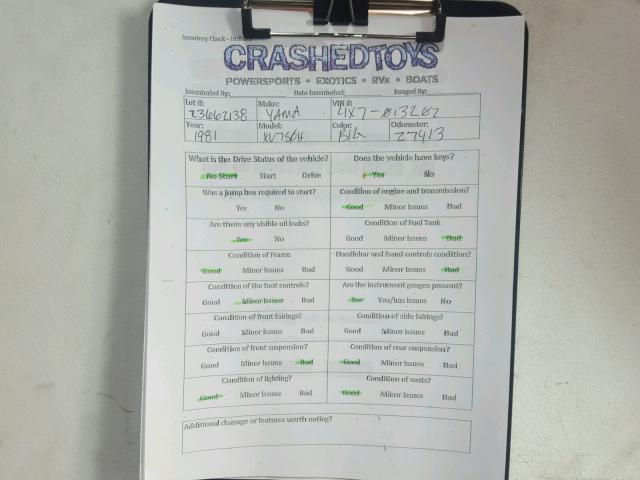 Inventory Check - In
CRASHEDTOYS
POWERSPORTS • EXOTICS • RVs • BOATS
Inventoried By: Date Inventoried: Imaged By:
Lot #: Make: VIN #:
23662138 YAMA 4X7-013262
Year: Model: Color: Odometer:
1981 XV750H Blk 27413
What is the Drive Status of the vehicle? Does the vehicle have keys?
No Start Start Drive Yes No
Was a jump box required to start? Condition of engine and transmission?
Yes No Good Minor Issues Bad
Are there any visible oil leaks? Condition of Fuel Tank
Yes No Good Minor Issues Bad
Condition of Frame Handlebar and hand controls condition?
Good Minor Issues Bad Good Minor Issues Bad
Condition of the foot controls? Are the instrument guages present?
Good Minor Issues Bad Yes Yes/has issues No
Condition of front fairings? Condition of side fairings?
Good Minor Issues Bad Good Minor Issues Bad
Condition of front suspension? Condition of rear suspension?
Good Minor Issues Bad Good Minor Issues Bad
Condition of lighting? Condition of seats?
Good Minor Issues Bad Good Minor Issues Bad
Additional damage or features worth noting?